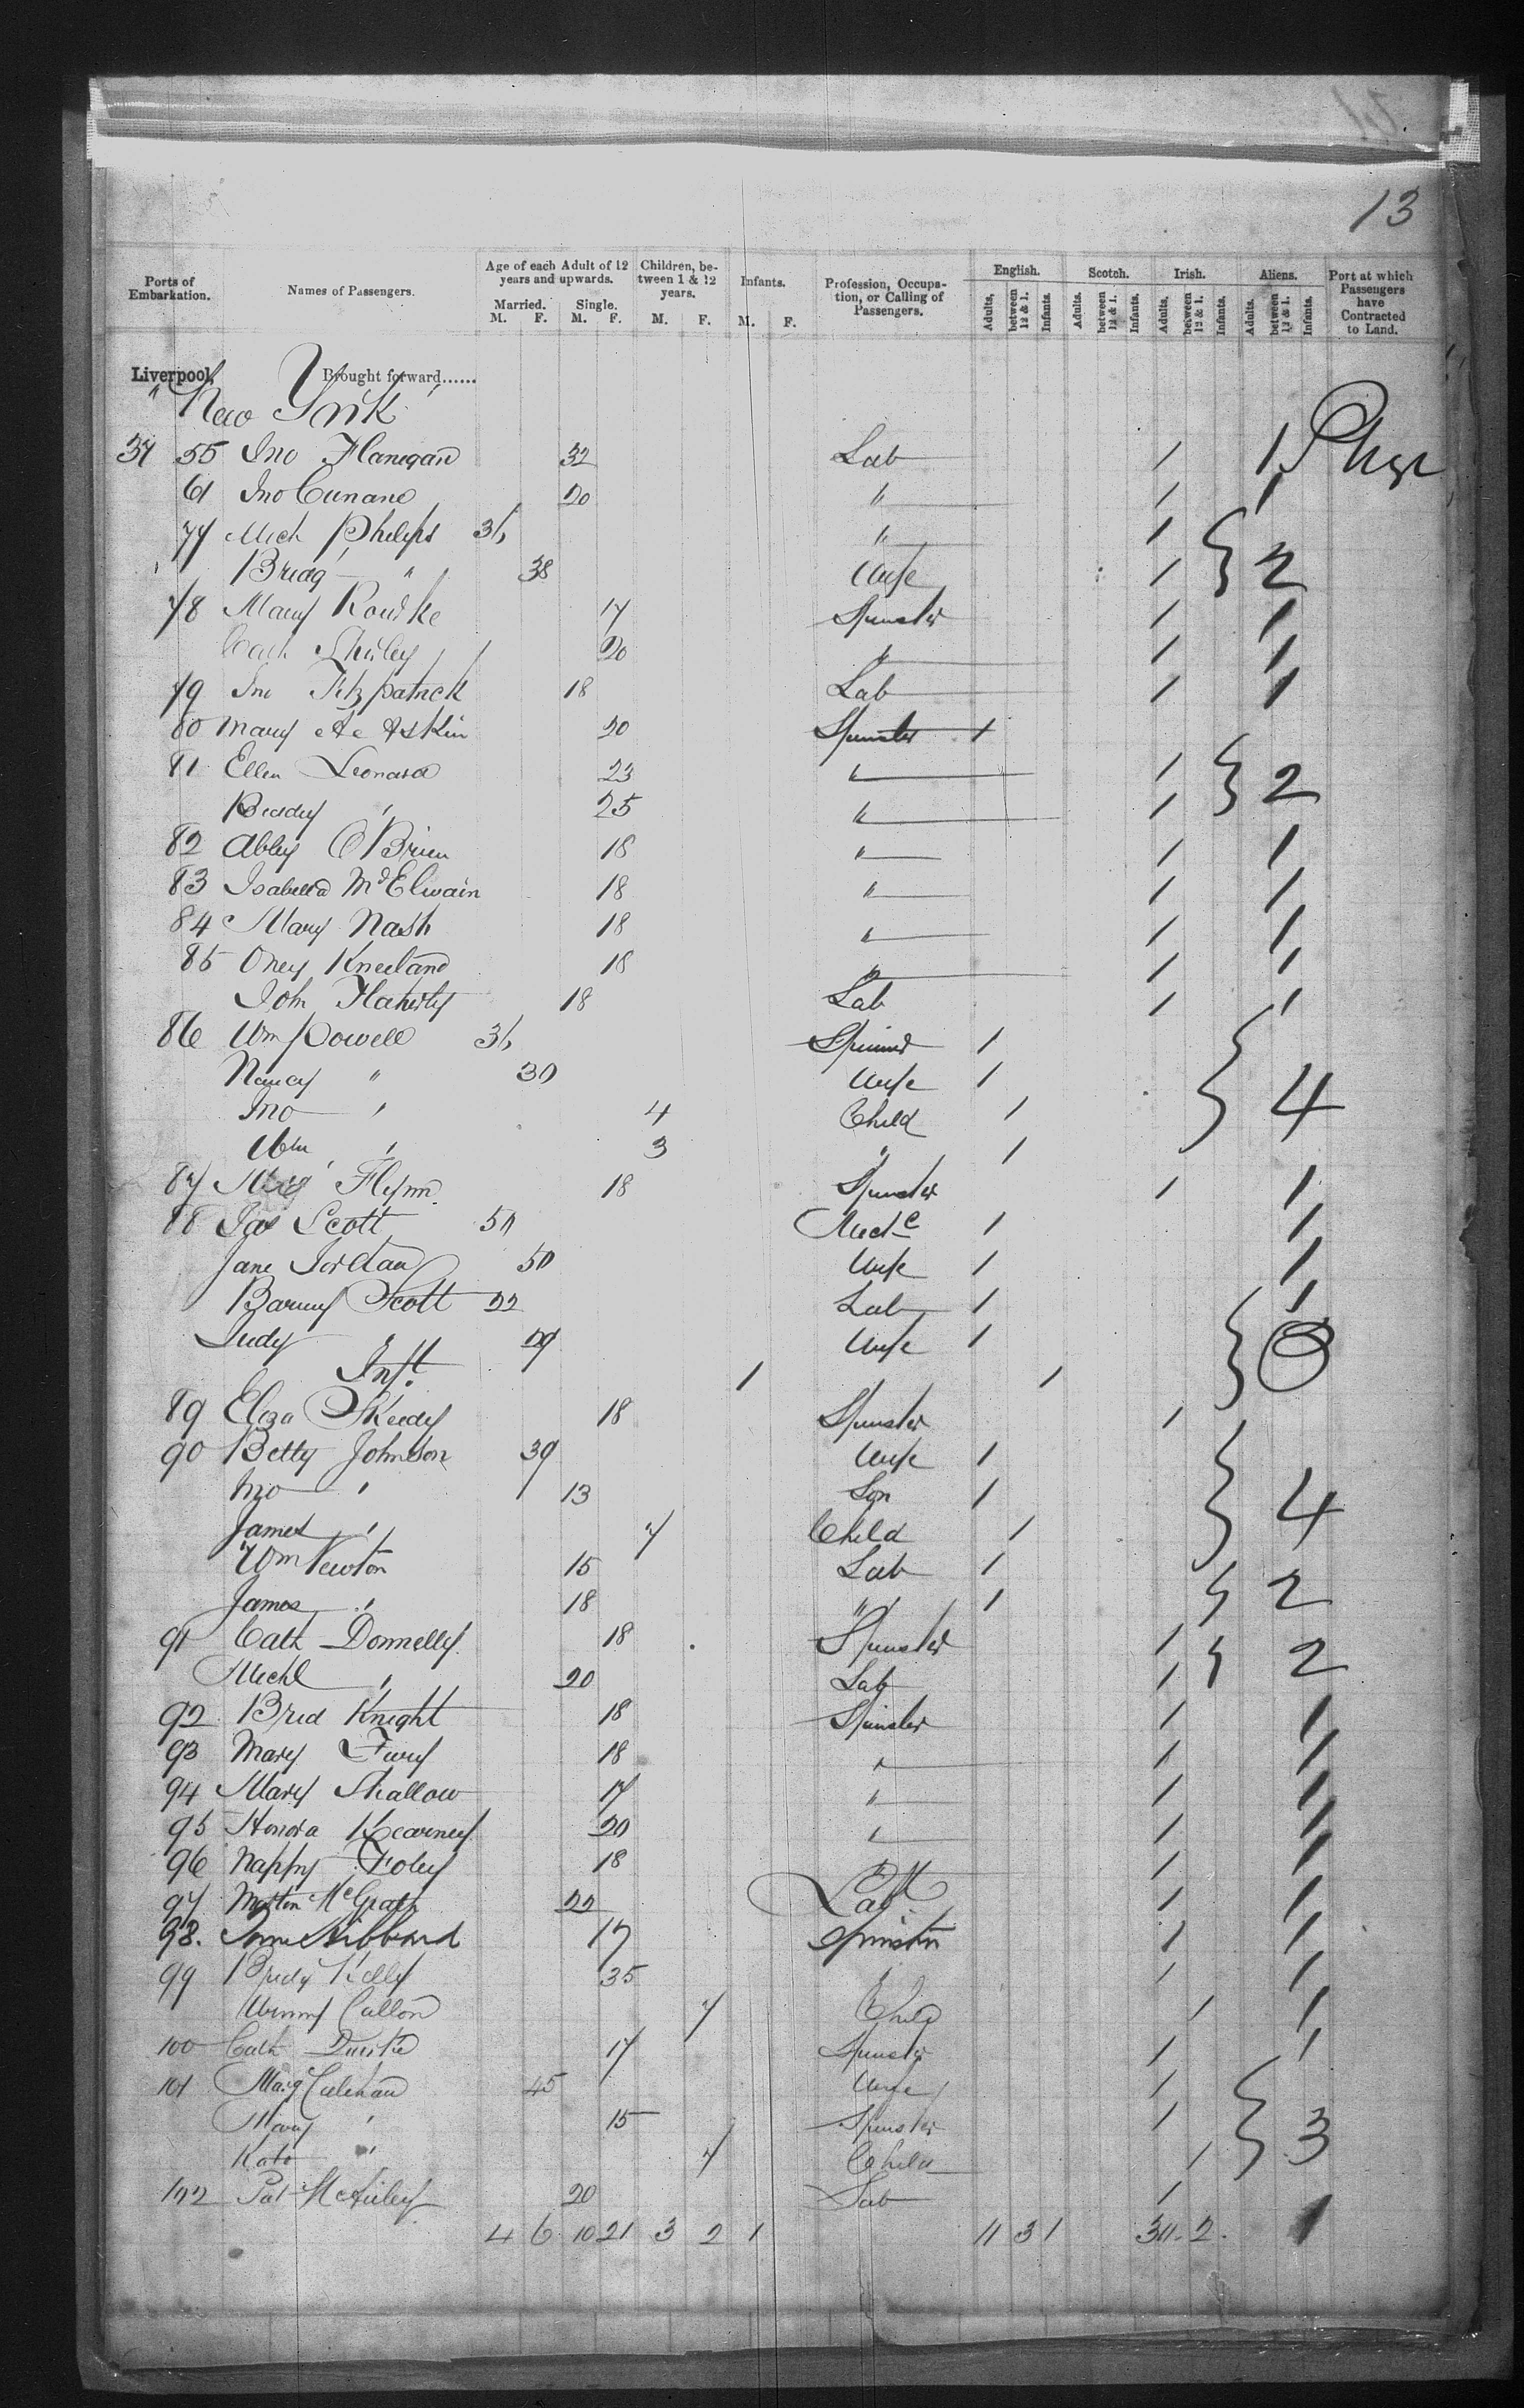 13
Ports of Embarkation. Names of Passengers. Age of each Adult of 12 years and upwards. Married. M. F. Single. M. F. Children, between 1 & 12 years. M. F. Infants. M. F. Profession, Occupation, or Calling of Passengers. English. Adults, between 12 & 1. Infants. Scotch. Adults. between 12 & 1. Infants. Irish. Adults, between 12 & 1. Infants. Aliens. Adults. between 12 & 1. Infants. Port at which Passengers have Contracted to Land.
Liverpool, Brought forward......
" New York
37 55 Jno Flanegan 32 Lab 1 1
61 Jno Cunane 20 " 1 1
77 Mich Phelps 36 " 1
Bridg " 38 Wife 1 2
78 Mary Rourke 17 Spinster 1 1
Cath 20 " 1 1
79 Jno Fitzpatrick 18 Lab 1 1
80 Mary Askin 20 Spinster 1
81 Ellen Leonard 23 " 1
Biddy " 25 " 1 2
82 Abby O'Brien 18 " 1 1
83 Isabella McElwain 18 " 1 1
84 Mary Nash 18 " 1 1
85 Oney Kneeland 18 " 1 1
John Flaherty 18 Lab 1 1
86 Wm Powell 36 Spinner 1
Nancy " 30 Wife 1 4
Jno " 4 Child 1
Wm " 3 " 1
87 Flynn 18 Spinster 1 1
88 Jas Scott 50 1 1
Jane Jordan 50 Wife 1 1
Barny Scott 22 Lab 1 1
Judy " Wife 1
Inft. 1 1
89 Eliza Skeedy 18 Spinster 1
90 Betty Johnson 39 Wife 1
Jno " 13 Son 1 4
James " 7 Child 1
Wm Newton 15 Lab 1
James " 18 " 1 2
91 Cath Donnelly 18 Spinster 1 2
Michl " 20 Lab 1
92 Brid Knight 18 Spinster 1 1
93 Mary Fury 18 " 1 1
94 Mary Shallow 17 " 1 1
95 Honora Kearney 20 " 1 1
96 Nappy Foley 18 " 1 1
97 Martin McGrath 22 Lab 1 1
98. Hibbard 17 Spinster 1 1
99 Bridy Kelly 35 1 1
Winny Callon 7 Child 1 1
100 Cath 17 Spinster 1 1
101 Marg Calehan 45 Wife 1
Mary " 15 Spinster 1 3
Kate " 7 Child 1
102 Pat McAuley 20 Lab 1 1
4 6 10 21 3 2 1 11 3 1 30. 2.